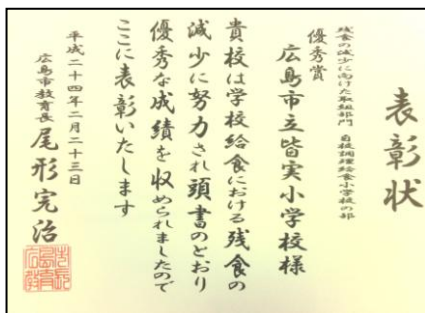 表彰状
残食の減少に向けた取組部門 自校調理給食小学校の部
優秀賞
広島市立皆実小学校様
貴校は学校給食における残食の
減少に努力され頭書のとおり
優秀な成績を収められましたので
ここに表彰いたします
平成二十四年二月二十三日
広島市教育長 尾形完治